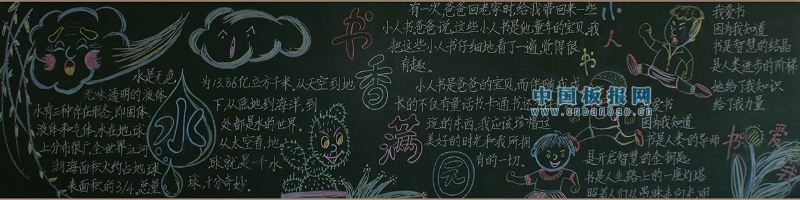 水是无色
无味透明的液体
水有三种存在形态,即固体
液体和气体,水在地球
上分布很广,全世界江河
湖海面积大约占地球
表面积的3/4,总量
水
为13.86亿立方千米,从天空到地
下,从陆地到海洋,到
处都是水的世界。
从太空看,地
球就是一个水
球,十分奇妙。
书香满园
有一次,爸爸回老家时,给我带回来一些
小人书,爸爸说,这些小人书是他童年的宝贝。我
把这些小人书仔细地看了一遍,觉得很
有趣。
小人书是爸爸的宝贝,而伴随我成
长的不仅有童话书、卡通书还
玩的东西,我应该珍惜这
美好的时光和我所拥
有的一切。
小人书
中国板报网
www.cnbanbao.cn
我爱书
因为我知道
书是智慧的结晶
是人类进步的阶梯
她给了我知识
给了我力量
我爱书
因为我知道
书是人类的导师
是开启智慧的金钥匙
书是人生路上的一座灯塔
照着人们从愚昧走向光明